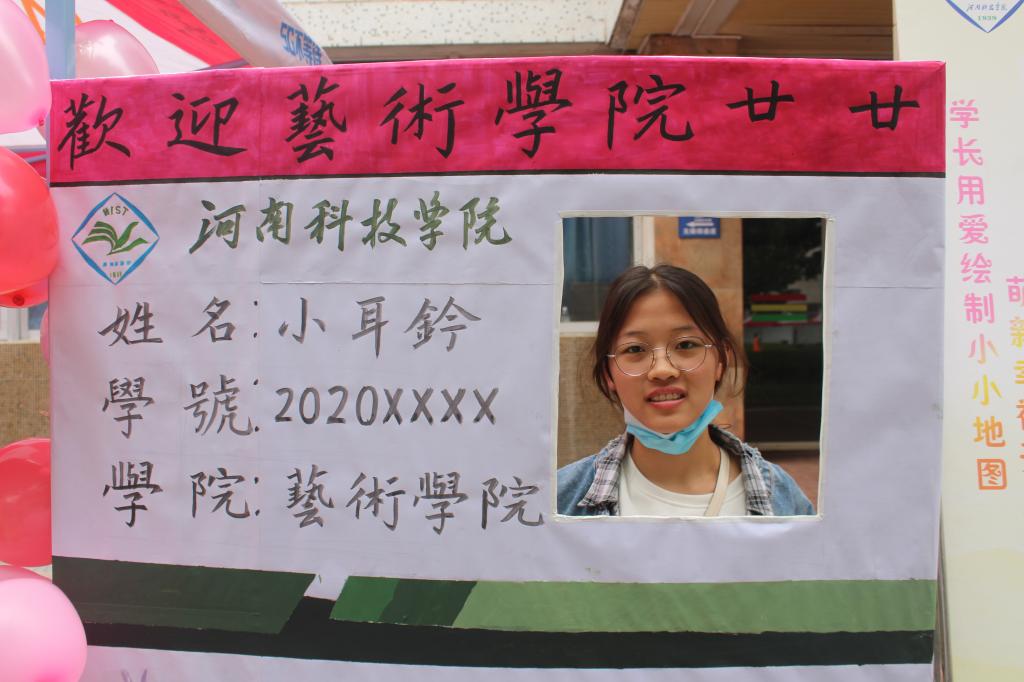 歡迎藝術學院廿廿
HIST
1939
河南科技学院
姓名:小耳鈴
學號:2020XXXX
學院:藝術學院
学长用爱绘制小小地图
萌新幸福
1939